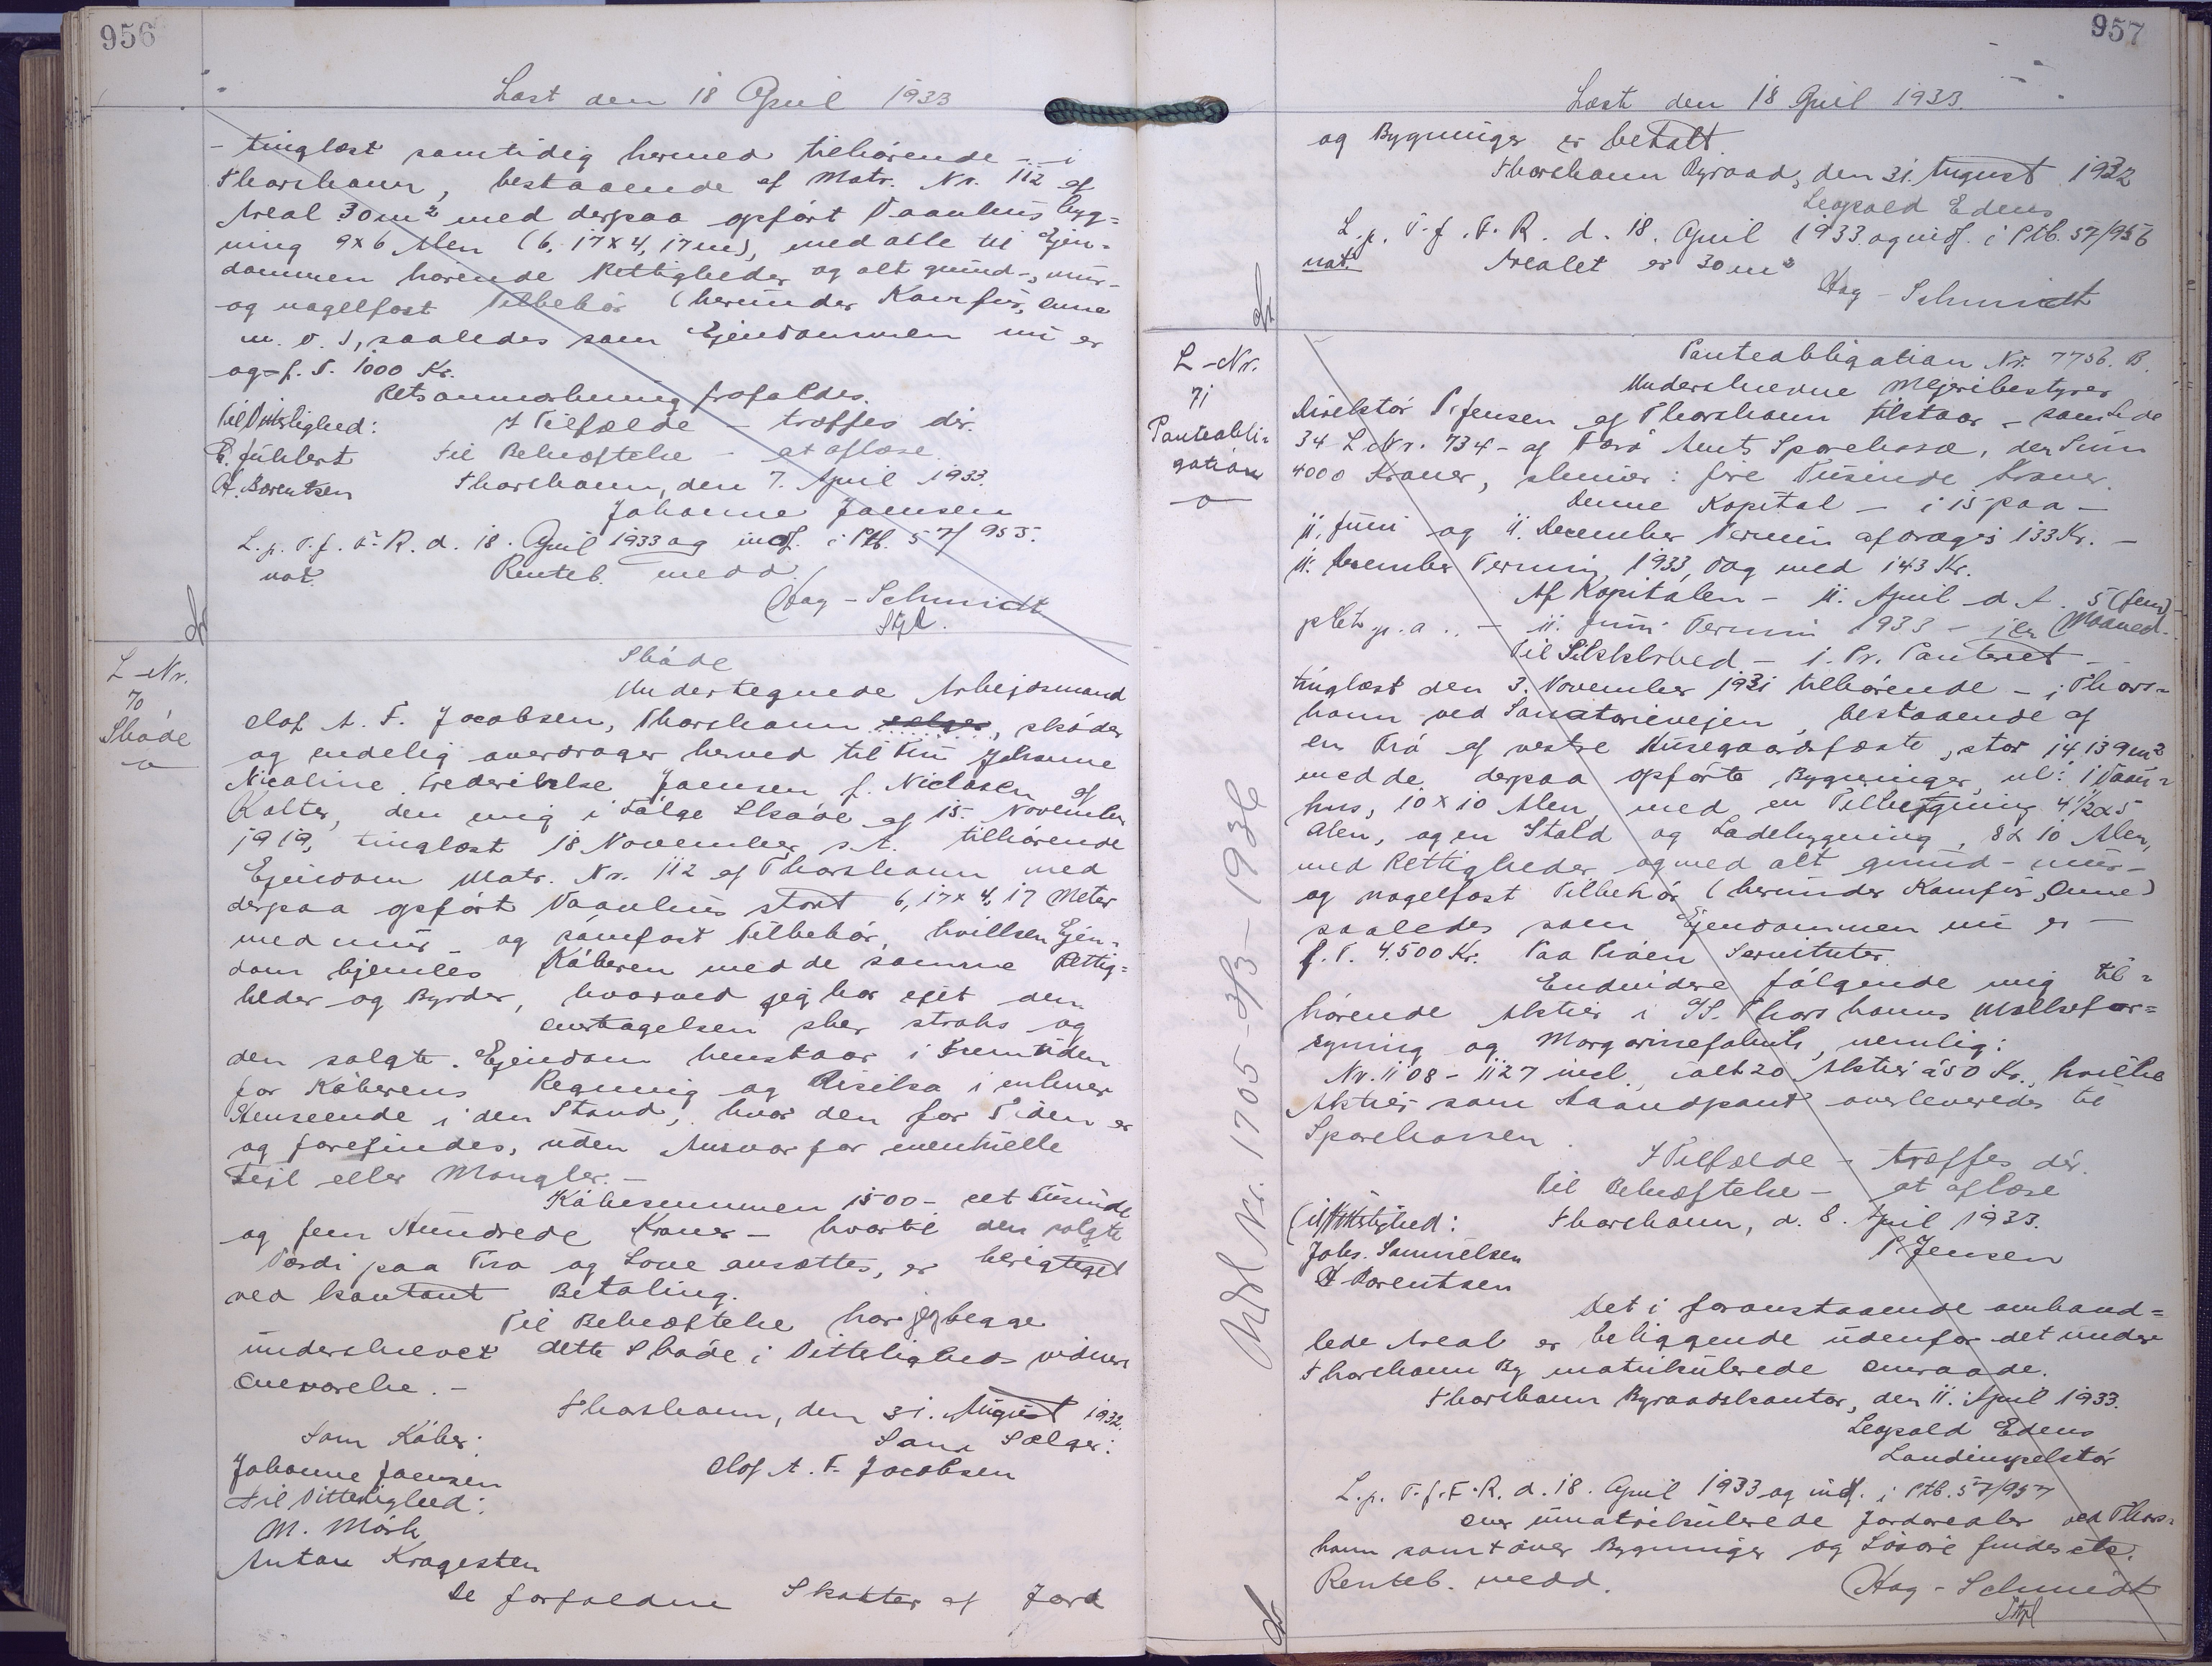 956
Læst den 18 April 1933
- tinglæst samtidig hermed tilhørende - i
Thorshavn, bestaaende af Matr. Nr. 112 af
Areal 30 m² med derpaa opført Vaanhus byg=
ning 9x6 Alen (6,17x4,17m), med alle til Ejen=
dommen hørende Rettigheder og alt grund-, mur-
og nagelfast Tilbehør (herunder Komfur, Ovne
m. v.), saaledes som Ejendommen nu er
og - f. V. 1000 Kr.
Retsanmærkning frafaldes.
Til Vitterlighed: I Tilfælde - træffes dér.
E. Júhlert til Bekræftelse - at aflæse.
A. Berentsen Thorshavn, den 7. April 1933.
Johanne Joensen
L. p. T. f. F. R. d. 18. April 1933 og indf. i Ptb. 57/955.
not. Renteb. medd.
Hag-Schmidt
Stfd.
L-Nr.
70,
Skøde
Skøde
Undertegnede Arbejdsmand
Olof A. F. Jacobsen, Thorshavn sælger, skøder
og endelig overdrager herved til Fru Johanne
Nicoline Frederikke Joensen f. Niclasen af
Kolter, den mig i Følge Skøde af 15. November
1919, tinglæst 18 November s. A. tilhørende
Ejendom Matr. Nr. 112 af Thorshavn med
derpaa opført Vaanhus stort 6,17x4,17 Meter
med mur- og sømfast Tilbehør, hvilken Ejen=
dom hjemles Køberen med de samme Rettig=
heder og Byrder, hvorved jeg har ejet den.
Overtagelsen sker straks og
den solgte Ejendom henstaar i Fremtiden
for Køberens Regning og Risiko i enhver
Henseende i den Stand, hvor den for Tiden er
og forefindes, uden Ansvar for eventuelle
Fejl eller Mangler.-
Købesummen 1500- eet Tusinde
og fem Hundrede Kroner - hvortil den solgte
Værdi paa Tro og Love ansættes, er berigtiget
ved kontant Betaling.
Til Bekræftelse har jeg begge
underskrevet dette Skøde i Vitterligheds vidners
Overværelse.-
Thorshavn, den 31. August 1932.
Som Køber: Som Sælger:
Johanne Joensen Olof A. F. Jacobsen
Til Vitterlighed:
M. Mørk
Anton Kragesteen
De forfaldne Skatter af Jord
957
Læst den 18 April 1933.
og Bygninger er betalt.
Thorshavn Byraad, den 31. August 1932
Leopold Edens
L. p. T. f. F. R. d. 18. April 1933. og indf. i Ptb. 57/956
not. Arealet er 30 m²
Hag-Schmidt
L-Nr.
71
Panteobli=
gation
Panteobligation Nr. 7756. B.
Underskrevne Mejeribestyrer
Direktør P. Jensen af Thorshavn tilstaar - som Side
34 L Nr. 734 - af Færø Amts Sparekasse, den Sum
4000 Kroner, skriver: fire Tusinde Kroner.
Denne Kapital - i 15 paa -
11. Juni og 11. December Termin afdrages 133 Kr. -
11. December Termin 1933, dog med 143 Kr.
Af Kapitalen - 11. April d. A. 5 (fem)
pCt. p. a. - 11. Juni Termin 1933 - jeg (Maaned.
Til Sikkerhed - 1. Pr. Panteret -
tinglæst den 3. November 1931 tilhørende - i Thors=
havn ved Sanatorievejen, bestaaende af
en Trø af vestre Husegaardsfæste, stor 14,139 m²
med de derpaa opførte Bygninger, nl: 1 Vaan=
hus, 10x10 Alen med en Tilbygning 4½x5
Alen, og en Stald og Ladebygning, 8x10 Alen,
med Rettigheder og med alt grund- mur-
og nagelfast Tilbehør (herunder Komfur, Ovne)
saaledes som Ejendommen nu er -
f. V. 4.500 Kr. Paa Trøen Servitutter.
Endvidere følgende mig til=
hørende Aktier i A/S. Thorshavns Mælkefor=
syning og Margarinefabrik, nemlig:
Nr. 1108 - 1127 incl., ialt 20 Aktier á 50 Kr., hvilke
Aktier som Haandpant overleveredes til
Sparekassen.
I Tilfælde - træffes dér.
Til Bekræftelse - at aflæse
Til Vitterlighed: Thorshavn, d. 8. April 1933.
Johs. Samuelsen P. Jensen
A Berentsen
Det i foranstaaende omhand=
lede Areal er beliggende udenfor det under
Thorshavn By matrikulerede Omraade.
Thorshavn Byraadskontor, den 11. April 1933.
Leopold Edens
Landinspektør
L. p. T. f. F. R. d. 18. April 1933 og indf. i Ptb. 57/957
Over umatrikulerede Jordarealer ved Thors=
havn samt over Bygninger og Løsøre findes etc.
Renteb. medd.
Hag-Schmidt
Stfd
Udsl Nr. 1705 - 3/3 - 1936